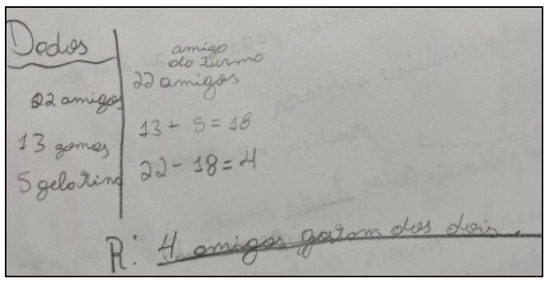 Dados
amigo
do turma
22 amigos
22 amigos
13 gomas
5 gelatina
13 + 5 = 18
22 - 18 = 4
R: 4 amigos gotam dos dois.